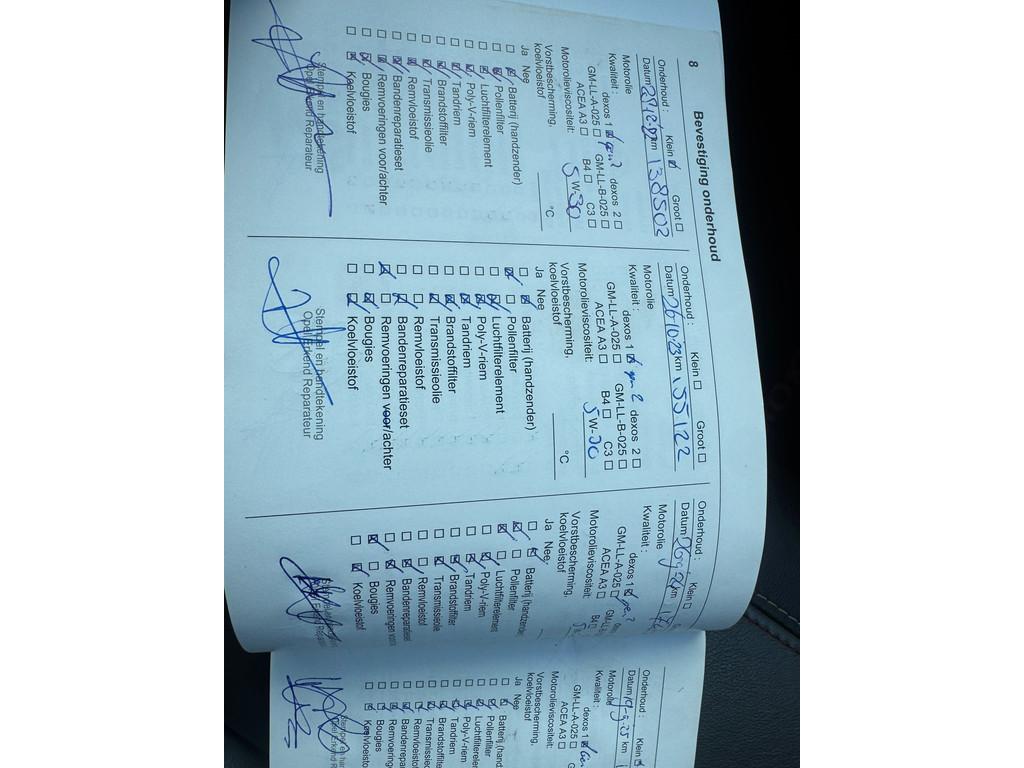 8
Bevestiging onderhoud
Onderhoud : Klein Groot
Datum 29-12-22 km 138502
Motorolie
Kwaliteit : dexos 1 gen 2 dexos 2
GM-LL-A-025 GM-LL-B-025
ACEA A3 B4 C3
Motorolieviscositeit: 5 W-30
Vorstbescherming,
koelvloeistof °C
Ja Nee
Batterij (handzender)
Pollenfilter
Luchtfilterelement
Poly-V-riem
Tandriem
Brandstoffilter
Transmissieolie
Remvloeistof
Bandenreparatieset
Remvoeringen voor/achter
Bougies
Koelvloeistof
Stempel en handtekening
Opel Erkend Reparateur
Onderhoud : Klein Groot
Datum 26-10-23 km 155122
Motorolie
Kwaliteit : dexos 1 gen 2 dexos 2
GM-LL-A-025 GM-LL-B-025
ACEA A3 B4 C3
Motorolieviscositeit: 5 W-30
Vorstbescherming,
koelvloeistof °C
Ja Nee
Batterij (handzender)
Pollenfilter
Luchtfilterelement
Poly-V-riem
Tandriem
Brandstoffilter
Transmissieolie
Remvloeistof
Bandenreparatieset
Remvoeringen voor/achter
Bougies
Koelvloeistof
Stempel en handtekening
Opel Erkend Reparateur
Onderhoud : Klein
Datum km
Motorolie
Kwaliteit : dexos 1 gen 2
GM-LL-A-025
ACEA A3 B4
Motorolieviscositeit: 5
Vorstbescherming,
koelvloeistof
Ja Nee
Batterij (handzende
Pollenfilter
Luchtfilterelement
Poly-V-riem
Tandriem
Brandstoffilter
Transmissieolie
Remvloeistof
Bandenreparatieset
Remvoeringen voor
Bougies
Koelvloeistof
Onderhoud : Klein
Datum km
Motorolie
Kwaliteit : dexos 1
GM-LL-A-025
ACEA A3
Motorolieviscositeit:
Vorstbescherming,
koelvloeistof
Ja Nee
Batterij (hand
Pollenfilter
Luchtfilterelement
Poly-V-riem
Tandriem
Brandstoffilter
Transmissieolie
Remvloeistof
Bandenrepara
Remvoeringen
Bougies
Koelvloeistof